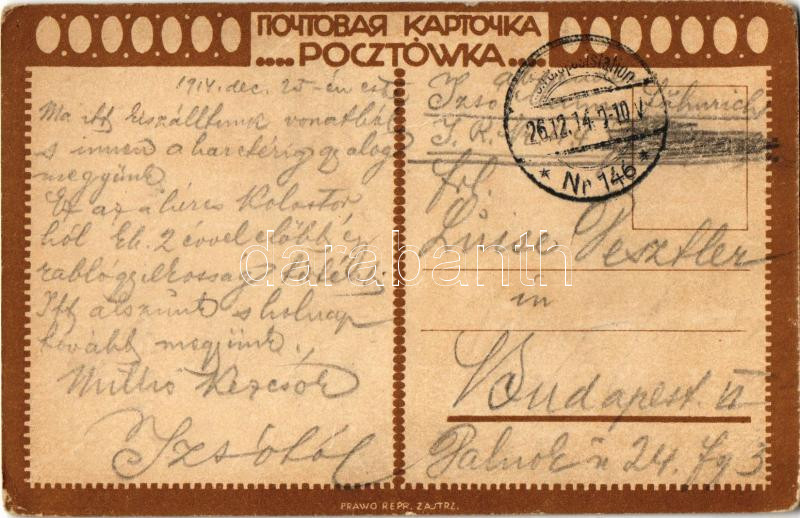 ПОЧТОВАЯ КАРТОЧКА
POCZTÓWKA
1914. dec. 25-én este
Ma itt kiszálltunk vonatból
s innen a harctérig gyalog
megyünk
Ez az a híres Kolostor
hol kb. 2 évvel előbb
rablógyilkosság
Itt alszunk s holnap
tovább megyünk.
Millió kézcsók
Izsótól
Feldpoststation
26.12.14. 9-10 V
* Nr 146 *
Izsó
frl.
Luise Pesztler
in
Budapest II
Palnok u 24. fg 3
darabanth
PRAWO REPR. ZASTRZ.